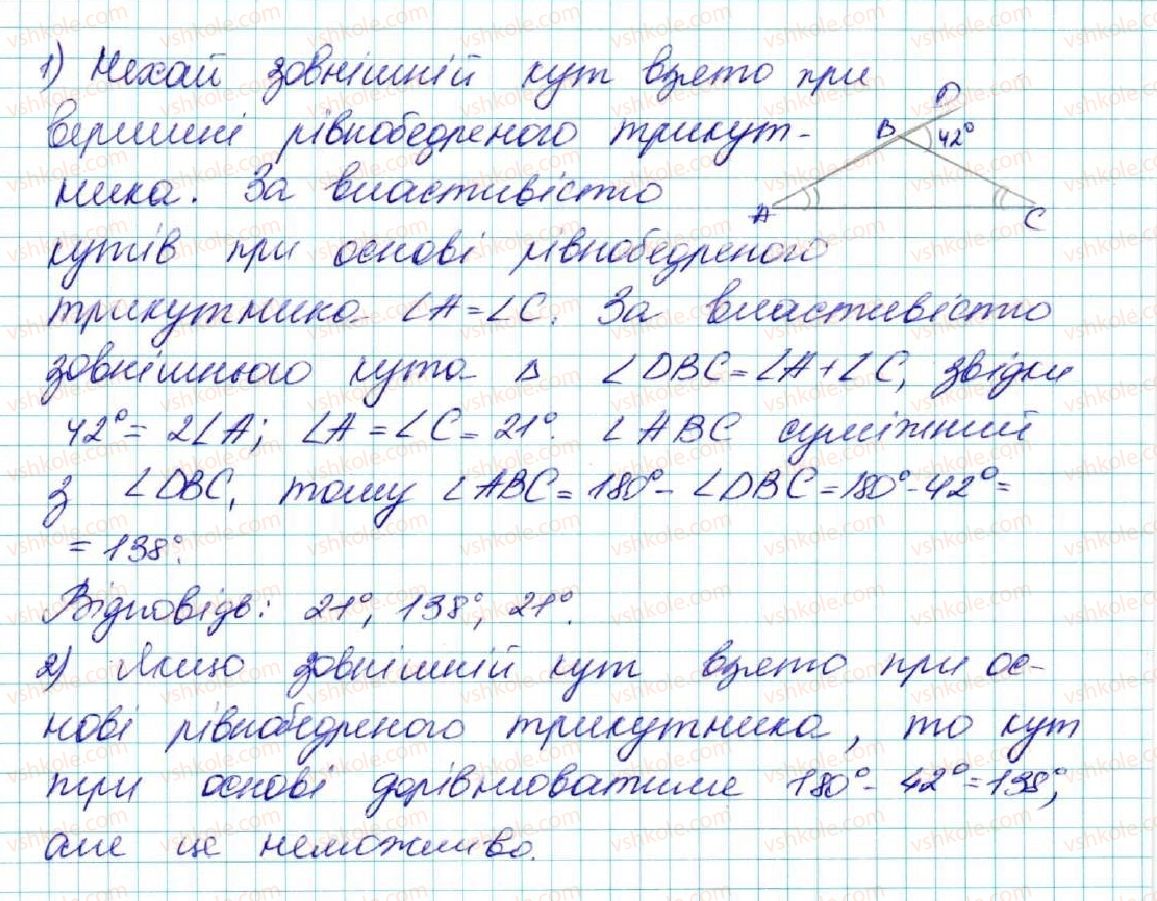 1) Нехай зовнішній кут взято при
вершині рівнобедреного трикут-
ника. За властивістю
кутів при основі рівнобедреного
трикутника ∠A=∠C. За властивістю
зовнішнього кута Δ ∠DBC=∠A+∠C, звідки
42°= 2∠A; ∠A=∠C= 21°. ∠ABC суміжний
з ∠DBC, тому ∠ABC= 180°- ∠DBC=180°-42°=
= 138°.
Відповідь: 21°, 138°, 21°.
2) Якщо зовнішній кут взято при ос-
нові рівнобедреного трикутника, то кут
при основі дорівнюватиме 180°- 42°=138°,
але це неможливо.
D
B 42°
A C
vshkole.com